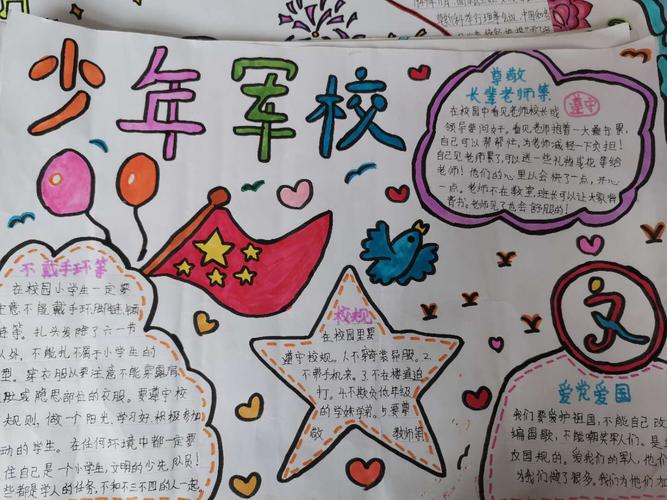 少年军校
尊敬
长辈老师等
遵守
在校园中看见老师校长或
领导要问好。看见老师抱着一大叠书累,
自己可以帮帮忙,为老师减轻一下负担!
自己见老师累了,可以送一些礼物或花等给
老师!他们的心里以会快了一点,开心
一点。老师不在教室,班长可以让大家背
背书。老师见了也会舒服的!
不戴手环等
在校园小学生一定要
注意不能戴手环,脚链,
链等。扎头发除了六一节
以外,不能扎不属于小学生的
型。穿衣服以要注意不能穿露肩
肚或腿思部位的衣服。要遵守校
规则,做一个阳光,学习好,积极参加
动的学生。在任何环境中都一定要
住自己是一个小学生,文明的少先队员!
些都是学人的任务,不和不三不四的人一起
校规
在校园里要
遵守校规。1.不穿奇装异服。2.
不带手机来。3.不在楼道追
打。4.不欺负低年级
的学妹学弟。5.要尊
敬 教师等
文
爱党爱国
我们要爱护祖国,不能自己改
编国歌,不能嘲笑军人们。是
反国规的。爱我们的军人,他们
为我们做了很多。我们为他们